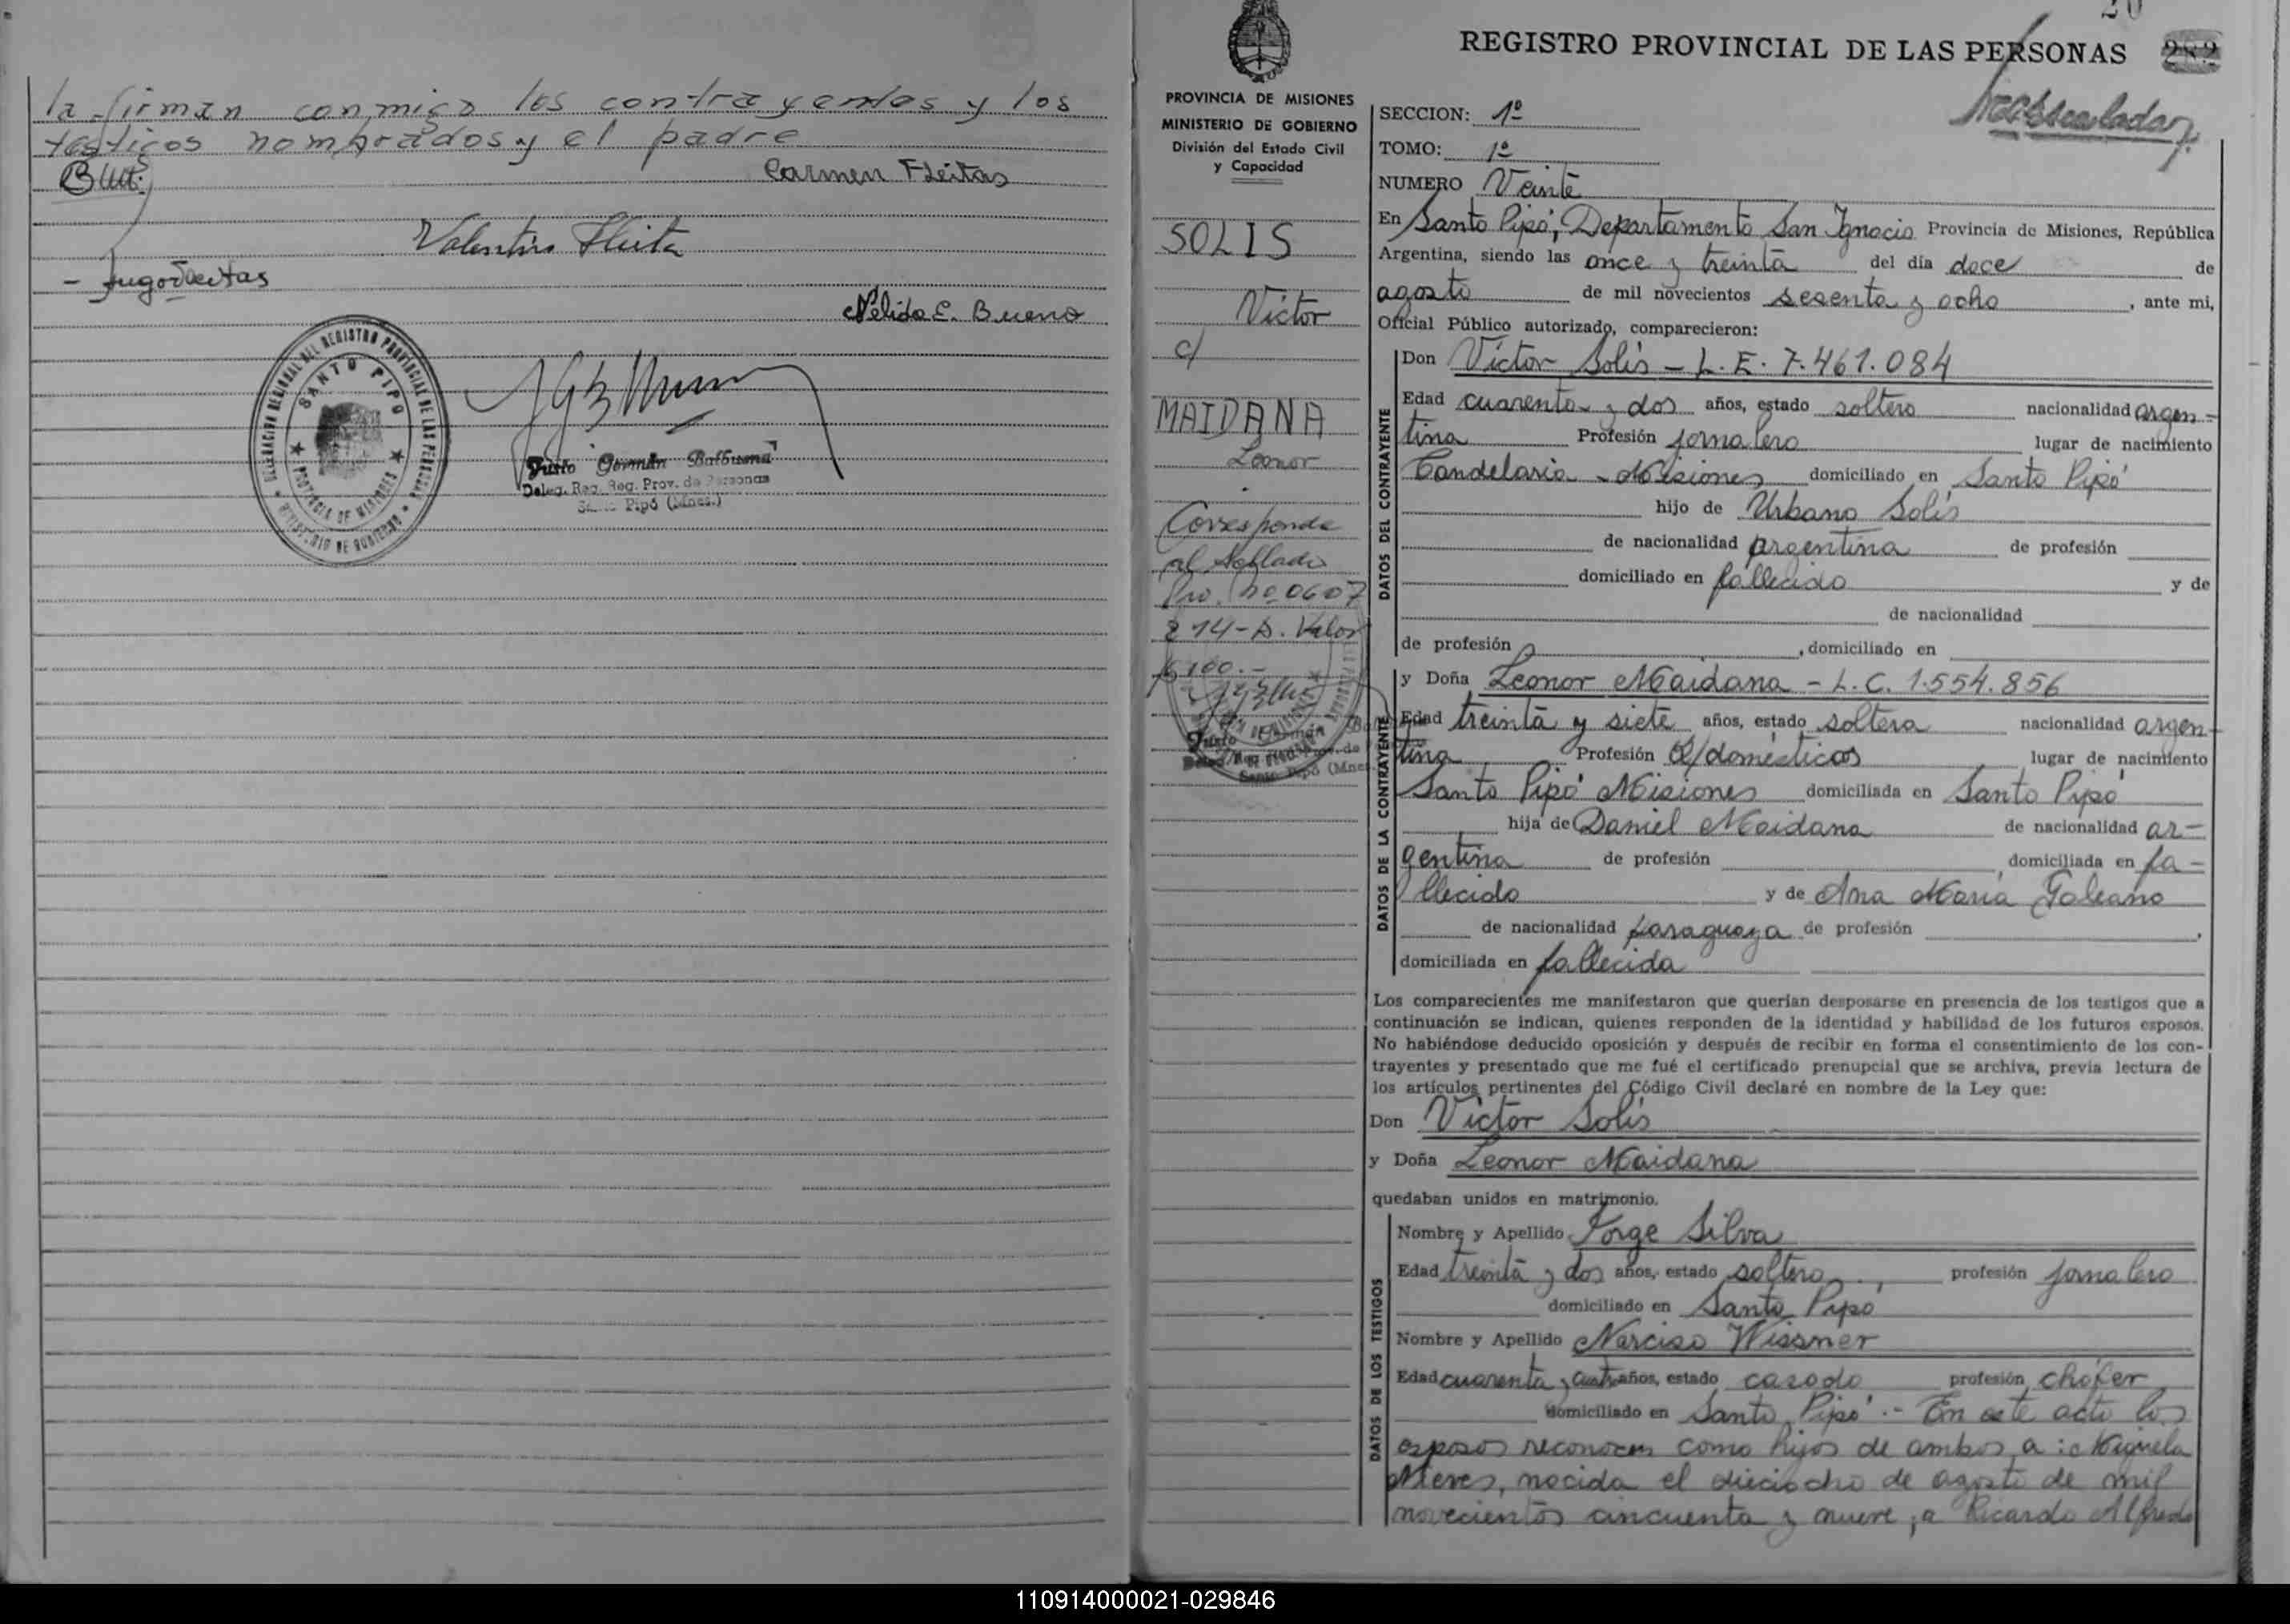 la firman conmigo los contrayentes y los
testigos nombrados y el padre
Carmen Fleitas
Valentin Fleita
Nélida E. Bueno
DELEGACION REGIONAL DEL REGISTRO PROVINCIAL DE LAS PERSONAS
SANTO PIPO
PROVINCIA DE MISIONES
MINISTERIO DE GOBIERNO
Justo Germán Balbuena
Deleg. Reg. Reg. Prov. de Personas
Santo Pipó (Mnes.)
20
REGISTRO PROVINCIAL DE LAS PERSONAS 282
PROVINCIA DE MISIONES
MINISTERIO DE GOBIERNO
División del Estado Civil
y Capacidad
SOLIS
Víctor
c/
MAIDANA
Leonor
Corresponde
al Sellado
Pro. no 0607
214-A. Valor
$ 100.-
Justo Germán
Santo Pipó (Mnes.
SECCION: 1º
TOMO: 1º
NUMERO Veinte
En Santo Pipó, Departamento San Ignacio Provincia de Misiones, República
Argentina, siendo las once y treinta del día doce de
agosto de mil novecientos sesenta y ocho, ante mi,
Oficial Público autorizado, comparecieron:
DATOS DEL CONTRAYENTE
Don Víctor Solís - L. E. 7.461.084
Edad cuarenta y dos años, estado soltero nacionalidad argen-
tina Profesión jornalero lugar de nacimiento
Candelaria - Misiones domiciliado en Santo Pipó
hijo de Urbano Solís
de nacionalidad argentina de profesión
domiciliado en fallecido y de
de nacionalidad
de profesión , domiciliado en
DATOS DE LA CONTRAYENTE
y Doña Leonor Maidana - L. C. 1.554.856
Edad treinta y siete años, estado soltera nacionalidad argen-
tina Profesión Q/domésticos lugar de nacimiento
Santo Pipó Misiones domiciliada en Santo Pipó
hija de Daniel Maidana de nacionalidad ar-
gentina de profesión , domiciliada en fa-
llecido y de Ana María Galeano
de nacionalidad paraguaya de profesión ,
domiciliada en fallecida
Los comparecientes me manifestaron que querían desposarse en presencia de los testigos que a
continuación se indican, quienes responden de la identidad y habilidad de los futuros esposos.
No habiéndose deducido oposición y después de recibir en forma el consentimiento de los con-
trayentes y presentado que me fué el certificado prenupcial que se archiva, previa lectura de
los artículos pertinentes del Código Civil declaré en nombre de la Ley que:
Don Víctor Solís
y Doña Leonor Maidana
quedaban unidos en matrimonio.
DATOS DE LOS TESTIGOS
Nombre y Apellido Jorge Silva
Edad treinta y dos años, estado soltero, profesión jornalero
domiciliado en Santo Pipó
Nombre y Apellido Narciso Wissner
Edad cuarenta y cuatro años, estado casado profesión chófer
domiciliado en Santo Pipó.- En este acto los
esposos reconocen como hijos de ambos a: Miguela
Nieves, nacida el dieciocho de agosto de mil
novecientos cincuenta y nueve, a Ricardo Alfredo
110914000021-029846